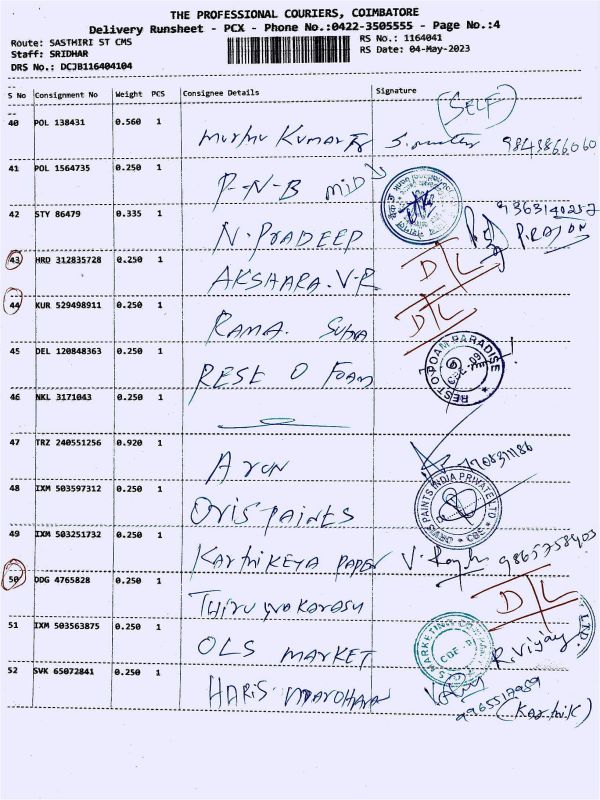 THE PROFESSIONAL COURIERS, COIMBATORE
Delivery Runsheet - PCX - Phone No.:0422-3505555 - Page No.:4
Route: SASTHIRI ST CMS
RS No.: 1164041
Staff: SRIDHAR
RS Date: 04-May-2023
DRS No.: DCJB116404104
S No Consignment No Weight PCS Consignee Details Signature
(SELF)
40 POL 138431 0.560 1
Kumar 9843866060
41 POL 1564735 0.250 1
P-N-B MID
42 STY 86479 0.335 1
N. PRADEEP
43 HRD 312835728 0.250 1
AKSHARA. V-R D/L
44 KUR 529498911 0.250 1
RAMA. D/L
45 DEL 120848363 0.250 1
REST O FOAM REST O FOAM PARADISE
46 NKL 3171043 0.250 1
47 TRZ 240551256 0.920 1
ARUN
48 IXM 503597312 0.250 1
ORIS PAINTS PAINTS INDIA PRIVATE LTD
49 IXM 503251732 0.250 1
KARTHIKEYA PAPER
50 DDG 4765828 0.250 1
D/L
51 IXM 503563875 0.250 1
OLS MARKET R. Vijay
LTD.
52 SVK 65072841 0.250 1
HARIS
(Karthik)